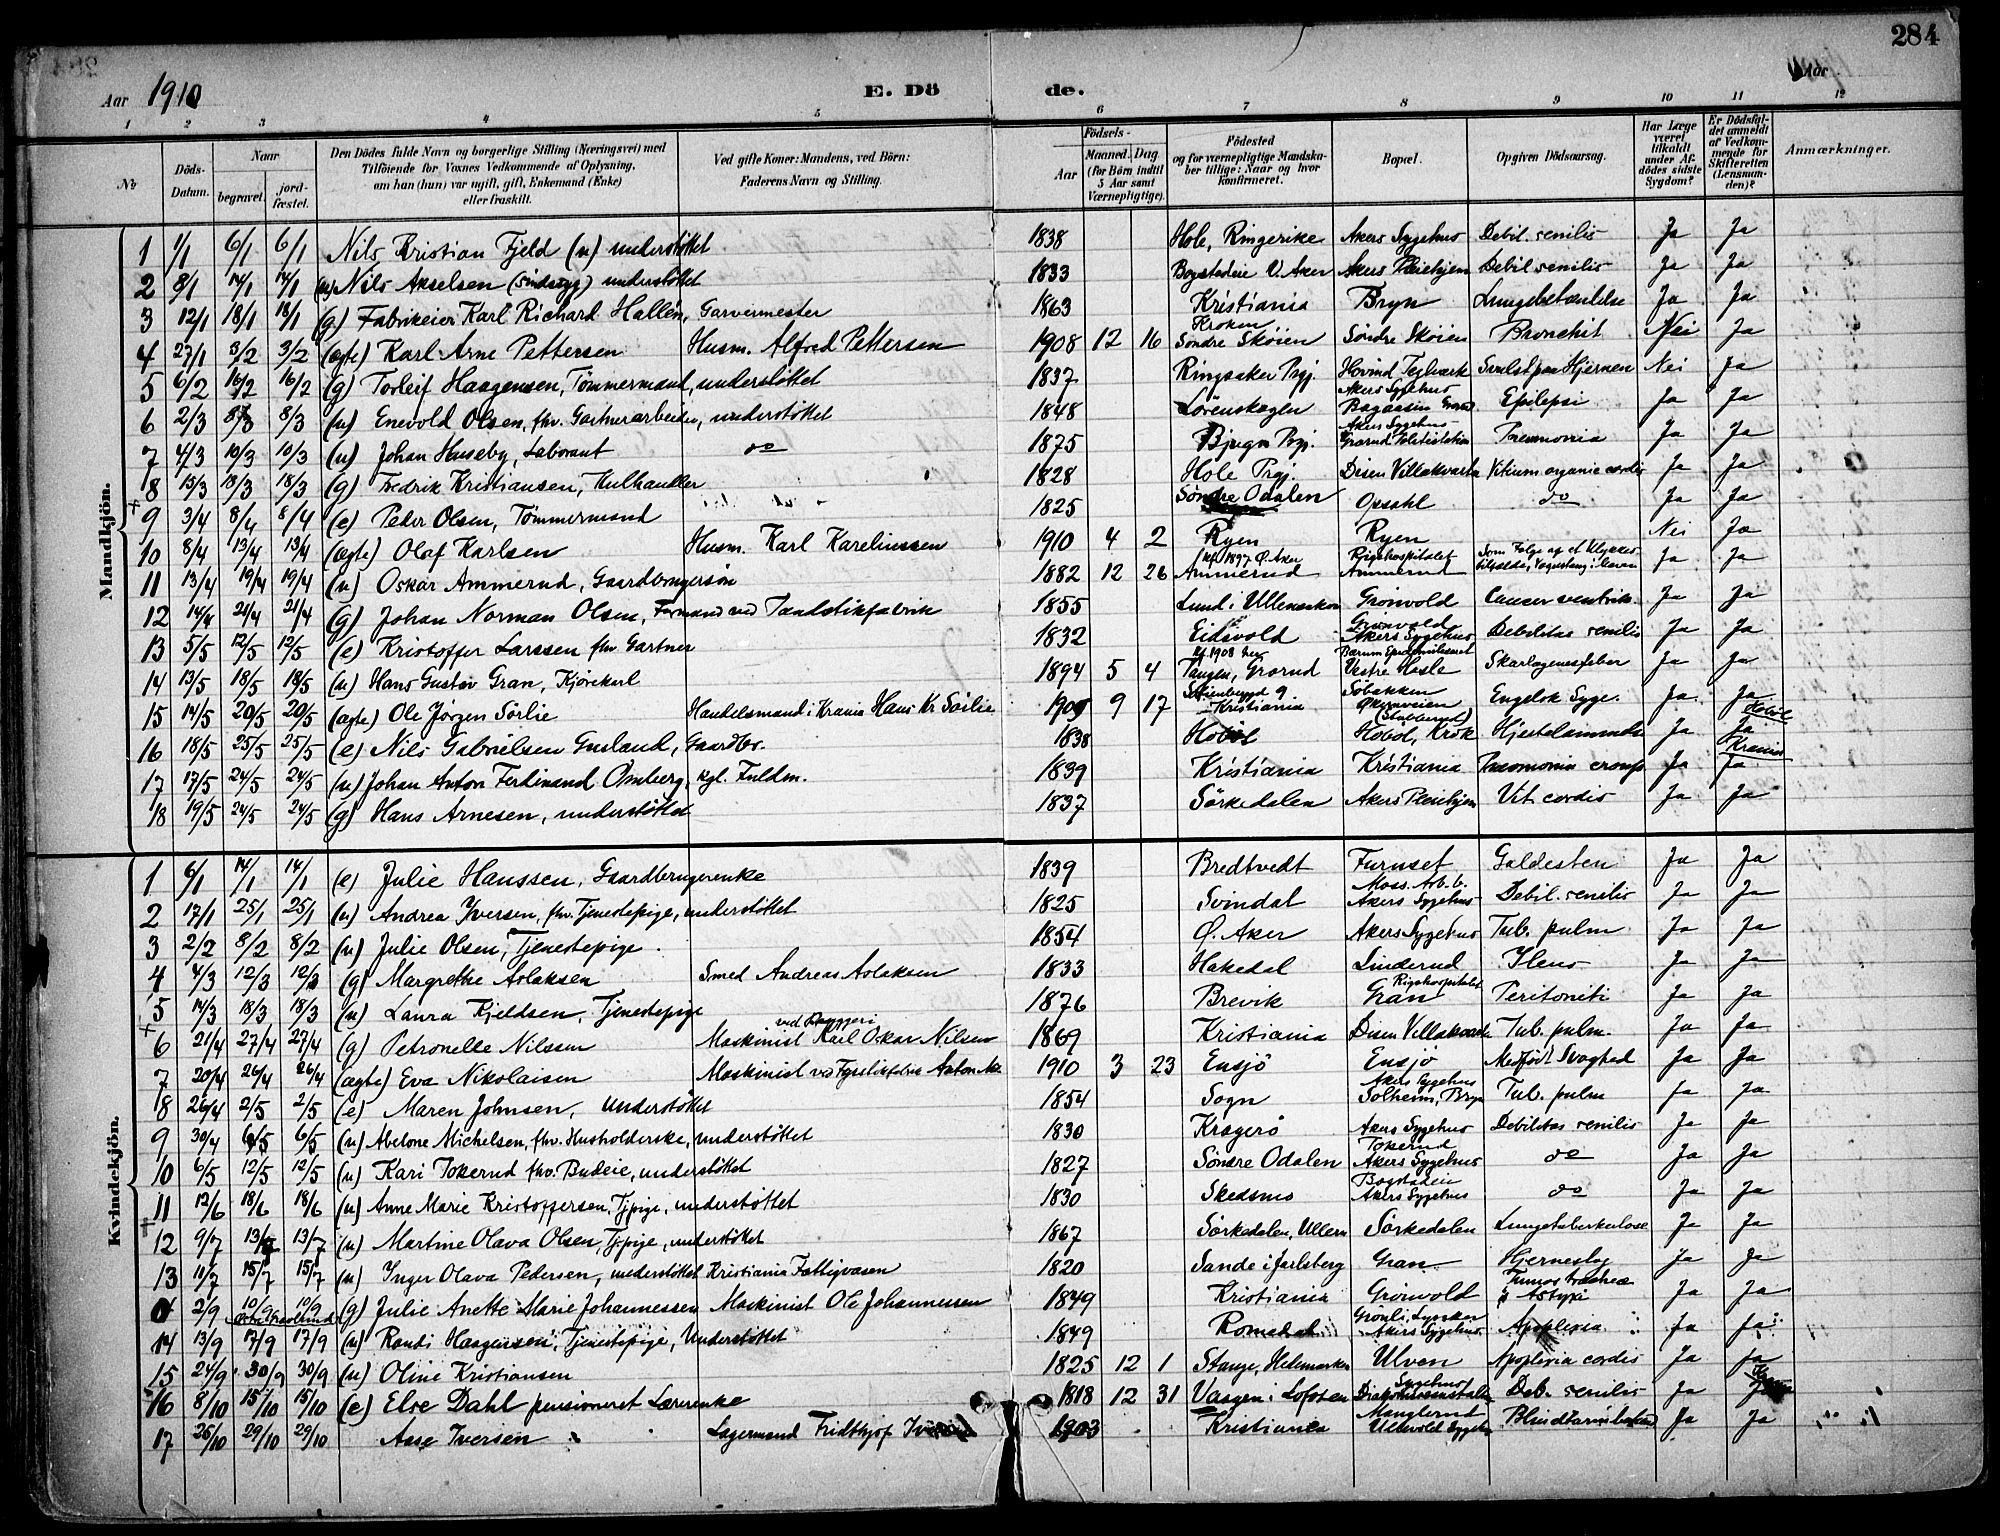 284
Aar 1910 E. Dö de. Aar
1 2 3 4 5 6 7 8 9 10 11 12
No Döds-Datum. Naar begravet. jord-fæstet. Den Dödes fulde Navn og borgerlige Stilling (Næringsvei) med Tilföiende for Voxnes Vedkommende af Oplysning, om han (hun) var ugift, gift, Enkemand (Enke) eller fraskilt. Ved gifte Koner: Mandens, ved Börn: Faderens Navn og Stilling. Födsels- Aar Maaned. Dag (for Börn indtil 5 Aar samt Værnepligtige). Födested og for værnepligtige Mandskaber tillige: Naar og hvor konfirmeret. Bopæl. Opgiven Dödsaarsag. Har Læge været tilkaldt under Afdödes sidste Sygdom? Er Dödsfaldet anmeldt af Vedkommende for Skifteretten (Lensmanden)? Anmærkninger.
Mandkjön.
1 1/1 6/1 6/1 Nils Kristian Fjeld (u) understøttet 1838 Hole, Ringerike Akers Sygehus Debil. senilis Ja Ja
2 8/1 14/1 14/1 (u) Nils Akselsen (sindssyg) understøttet 1833 Bogstadeie V. Aker Akers Pleiehjem Debil senilis Ja Ja
3 12/1 18/1 18/1 (g) Fabrikeier Karl Richard Hallén, Garvermester 1863 Kristiania Bryn Lungebetændelse Ja Ja
4 27/1 3/2 3/2 (ægte) Karl Arne Pettersen Husm. Alfred Pettersen 1908 12 16 Kroken Søndre Skøien Søndre Skøien Bronchit Nei Ja
5 6/2 16/2 16/2 (g) Torleif Haagensen, Tømmermand, understøttet 1837 Ringsaker Prgj. Hovind Teglværk Svulst paa Hjernen Nei Ja
6 2/3 8/3 8/3 (u) Enevold Olsen, fhv. Gartnerarbeider, understøttet 1848 Lørenskogen Akers Sygehus Epilepsi Ja Ja
7 4/3 10/3 10/3 (u) Johan Huseby, Laborant do 1875 Bjugn Prgj. Akers Sygehus Grorud Pneumonia Ja Ja
8 13/3 18/3 18/3 (g) Fredrik Kristiansen, Kulhandler 1828 Hole Prgj. Disen Villakvarter Vitium organic cordis Ja Ja
9 3/4 8/4 8/4 (e) Peder Olsen, Tømmermand 1825 Søndre Odalen Opsahl do Ja Ja
10 8/4 13/4 13/4 (ægte) Olaf Karlsen Husm. Karl Kareliussen 1910 4 2 Ryen Ryen Nei Ja
11 13/4 19/4 19/4 (u) Oskar Ammerud, Gaardbrugersøn 1882 12 26 kfl 1897 Ø. Aker Ammerud Rigshospitalet Ammerud Som Følge af et Ulykkes- Ja Ja
12 14/4 21/4 21/4 (g) Johan Norman Olsen, Formand ved Tændstikfabrik 1855 Lund i Ullensaker Grønvold Cancer ventrik. Ja Ja
13 5/5 12/5 12/5 (e) Kristoffer Larssen fhv. Gartner 1832 Eidsvold Grønvold Akers Sygehus Debilitas senilis Ja Ja
14 13/5 18/5 18/5 (u) Hans Gustav Gran, Kjørekarl 1894 5 4 kf. 1908 her Tangen, Grorud Bærum Epidemilasaret Vestre Hasle Skarlagensfeber Ja Ja
15 14/5 20/5 20/5 (ægte) Ole Jørgen Sørlie Handelsmand i Krania Hans Kr Sørlie 1909 9 17 Kristiania Søbakken Økernveien Engelsk Syge. Ja Ja
16 18/5 25/5 25/5 (e) Nils Gabrielsen Gusland, Gaardbr. 1838 Hobøl (Stubberud) Hobøl, Krok Hjertelammelse Ja Hobøl Ja
17 17/5 24/5 24/5 (u) Johan Anton Ferdinand Omberg, kgl. Fuldm. 1839 Kristiania Kristiania Pneumonia croup. Ja Krania Ja
18 19/5 24/5 24/5 (g) Hans Arnesen, understøttet 1837 Sørkedalen Akers Pleiehjem Vit. cordis Ja Ja
Kvindekjön.
1 6/1 14/1 14/1 (e) Julie Hanssen, Gaardbrugerenke 1839 Bredtvedt Furuset Galdesten Ja Ja
2 17/1 25/1 25/1 (u) Andrea Iversen, fhv. Tjenestepige, understøttet 1825 Svindal Moss. Arb. b. Akers Sygehus Debil. senilis Ja Ja
3 2/2 8/2 8/2 (u) Julie Olsen, Tjenestepige 1854 Ø. Aker Akers Sygehus Tub. pulm Ja Ja
4 4/3 12/3 12/3 (g) Margrethe Aslaksen Smed Andreas Aslaksen 1833 Hakedal Linderud Ileus Ja Ja
5 14/3 18/3 18/3 (u) Laura Kjeldsen, Tjenestepige 1876 Brevik Rigshospitalet Gran Peritoniti Ja Ja
6 21/4 27/4 27/4 (g) Petronelle Nilssen Maskinist ved Bryggeri Karl Oskar Nilsen 1869 Kristiania Disen Villakvarter Tub. pulm. Ja Ja
7 20/4 26/4 26/4 (ægte) Eva Nikolaisen Maskinist ved Fyrstikfabrik Anton Nik 1910 3 23 Ensjø Ensjø Medfødt Svaghed Ja Ja
8 26/4 2/5 2/5 (e) Maren Johnsen, Understøttet 1854 Sogn Akers Sygehus Solheim, Bryn Tub. pulm Ja Ja
9 30/4 6/5 6/5 (u) Abelone Michelsen, fhv. Husholderske, understøttet 1830 Kragerø Akers Sygehus Debilitas senilis Ja Ja
10 6/5 12/5 12/5 (u) Kari Tokerud fhv. Budeie, understøttet 1827 Søndre Odalen Tokerud Akers Sygehus do Ja Ja
11 12/6 18/6 18/6 (u) Anne Marie Kristoffersen, Tjpige, understøttet 1830 Skedsmo Bogstadeie Akers Sygehus do Ja Ja
12 9/7 13/7 13/7 (u) Martine Olava Olsen, Tjpige, understøttet 1867 Sørkedalen, Ullern Sørkedalen Lungetuberkulose Ja Ja
13 11/7 15/7 15/7 (u) Inger Olava Pedersen, understøttet Kristiania Fattigvæsen 1820 Sande i Jarlsberg Gran Hjerneslag Ja Ja
2/9 10/9 10/9 (g) Julie Anette Marie Johannessen Maskinist Ole Johannessen 1849 Kristiania Grønvold Tumor tracheæ Ja Ja
14 13/9 17/9 17/9 (u) Randi Haagensen, Tjenestepige, Understøttet 1849 Romedal Akers Sygehus Apoplexia Ja Ja
15 24/9 30/9 30/9 (u) Oline Kristiansen 1825 12 1 Stange, Hedemarken Ulven Apoplexia cordis Ja Ja
16 8/10 15/10 15/10 (e) Else Dahl pensioneret Lærerenke 1818 12 31 Vaagen i Lofoten Diakonisseanstalten Deb. senilis Ja
17 25/10 29/10 29/10 Aase Iversen Lagermand Fridthjof Iversen 1903 Kristiania Manglerud Ullevold Sygehus Blindtarmsbetænd Ja Ja